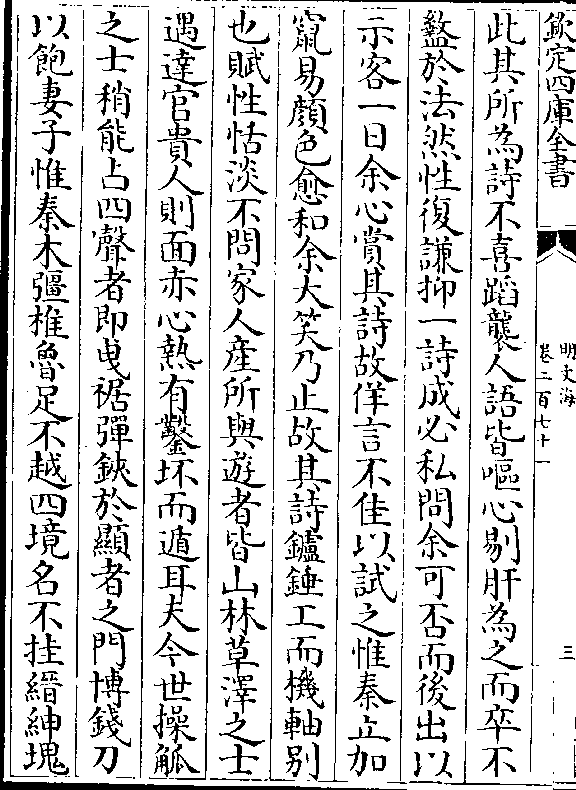 欽定四庫全書
明文海
卷二百七十一
三
此其所為詩不喜蹈襲人語皆嘔心剔肝為之而卒不
盭於法然性復謙抑一詩成必私問余可否而後出以
示客一日余心賞其詩故佯言不佳以試之惟秦立加
竄易顏色愈和余大笑乃止故其詩鑪錘工而機軸别
也賦性恬淡不問家人產所與遊者皆山林草澤之士
遇達官貴人則面赤心熱有鑿坏而遁耳夫今世操觚
之士稍能占四聲者即曵裾彈鋏於顯者之門博錢刀
以飽妻子惟秦木彊椎魯足不越四境名不挂縉紳塊